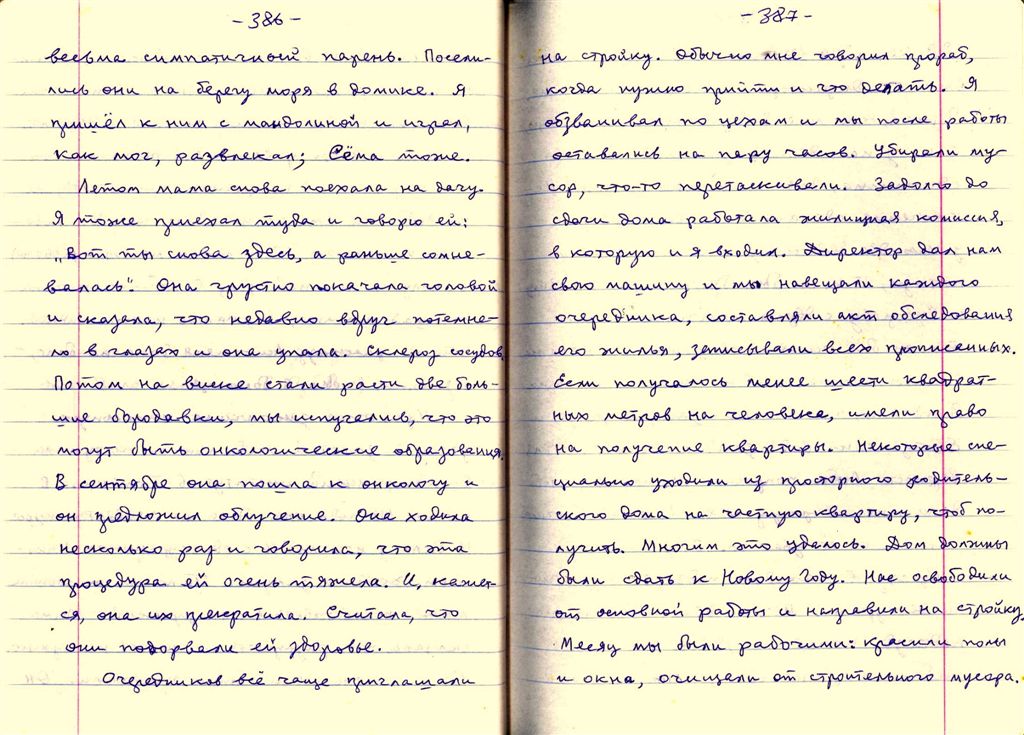 - 386 -
весьма симпатичный парень. Посели-
лись они на берегу моря в домике. Я
пришёл к ним с мандолиной и играл,
как мог, развлекал; Сёма тоже.
Летом мама снова поехала на дачу.
Я тоже приехал туда и говорю ей:
„Вот ты снова здесь, а раньше сомне-
валась". Она грустно покачала головой
и сказала, что недавно вдруг потемне-
ло в глазах и она упала. Склероз сосудов.
Потом на виске стали расти две боль-
шие бородавки, мы испугались, что это
могут быть онкологические образования.
В сентябре она пошла к онкологу и
он предложил облучение. Она ходила
несколько раз и говорила, что эта
процедура ей очень тяжела. И, кажет-
ся, она их прекратила. Считала, что
они подорвали ей здоровье.
Очередников всё чаще приглашали
- 387 -
на стройку. Обычно мне говорил прораб,
когда нужно прийти и что делать. Я
обзванивал по цехам и мы после работы
оставались на пару часов. Убирали му-
сор, что-то перетаскивали. Задолго до
сдачи дома работала жилищная комиссия,
в которую и я входил. Директор дал нам
свою машину и мы навещали каждого
очередника, составляли акт обследования
его жилья, записывали всех прописанных.
Если получалось менее шести квадрат-
ных метров на человека, имели право
на получение квартиры. Некоторые спе-
циально уходили из просторного родитель-
ского дома на частную квартиру, чтоб по-
лучить. Многим это удалось. Дом должны
были сдать к Новому Году. Нас освободили
от основной работы и направили на стройку.
Месяц мы были рабочими: красили полы
и окна, очищали от строительного мусора.